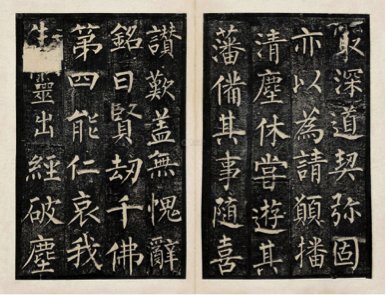 取深道契弥固
亦以為請願播
清塵休甞遊其
藩備其事随喜
讃歎盖無愧辭
銘曰賢劫千佛
第四能仁哀我
生靈出經破塵